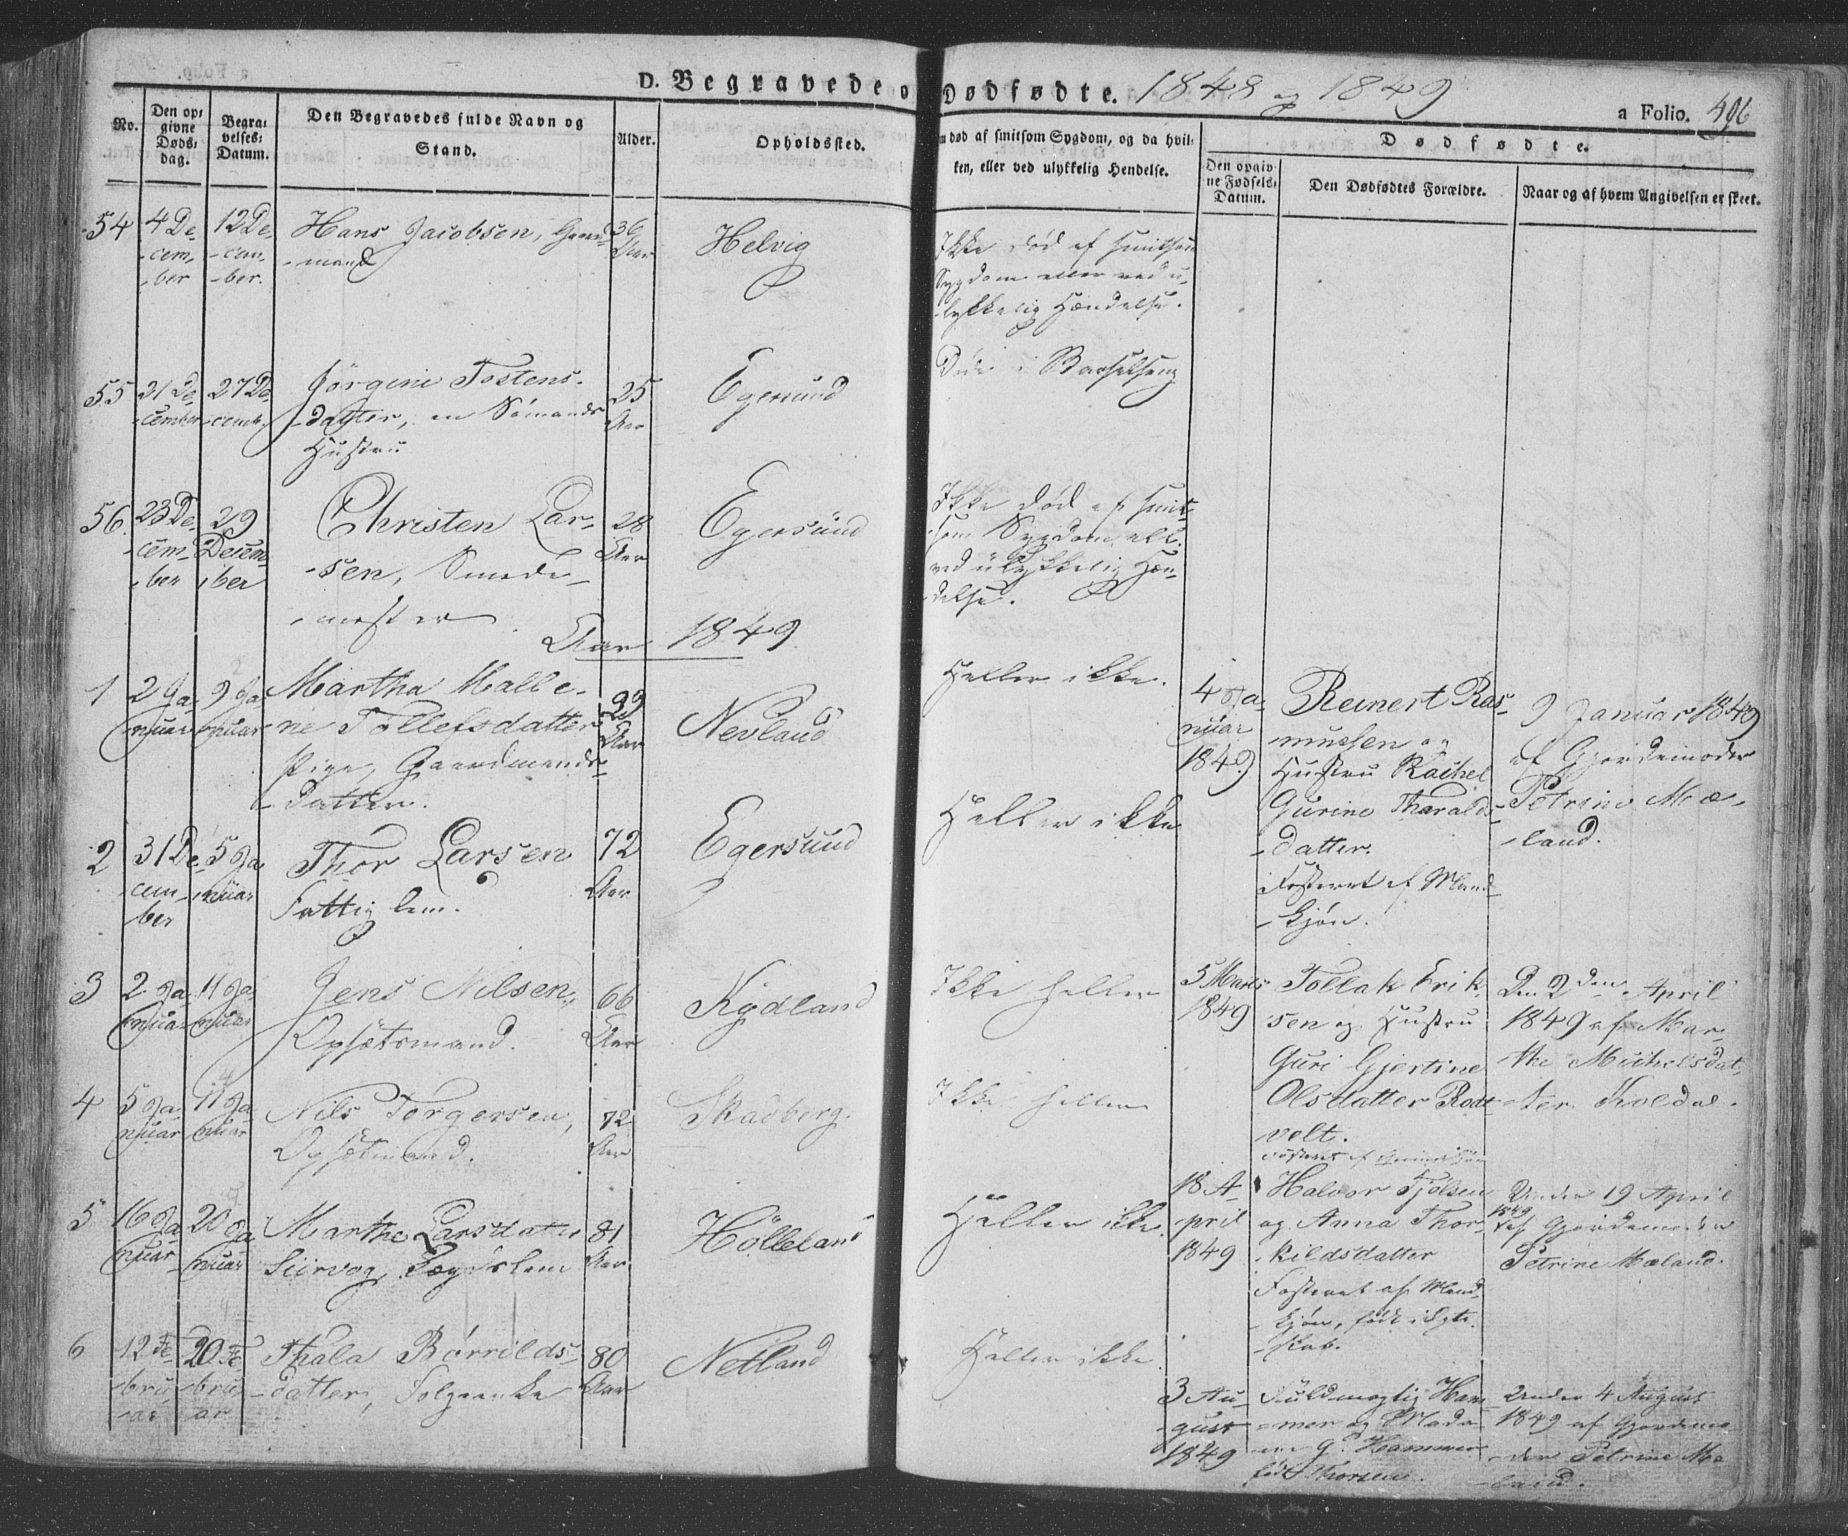 D. Begravede og Dødfødte. 1848 og 1849
a Folio. 496
No.
Den op-
givne
Døds-
dag.
Begra-
velses-
Datum.
Den Begravedes fulde Navn og
Stand.
Alder.
Opholdssted.
m død af smitsom Sygdom, og da hvil-
ken, eller ved ulykkelig Hendelse.
Dødfødte.
Den opgiv-
ne Fødsels-
Datum.
Den Dødfødtes Forældre.
Naar og af hvem Angivelsen er skeet.
54
4 De-
-cem-
-ber
12 De-
-cem-
-ber.
Hans Jacobsen, Gaard-
-mand
36
Aar
Helvig
Ikke død af smitsom
Sygdom eller ved u-
-lykkelig Hændelse.
55
21 De-
-cember
27 De-
-cemb.
Jörgine Tostens-
-datter, en Sömands
Hustru
25
Aar
Egersund
Døde i Barselseng
56
23 De-
-cem-
-ber
29
Desem-
ber
Christen Lar-
-sen, Smede-
-mester
28
Aar
Egersund
Ikke død af smit-
-som Sygdom, ell.
ved ulykkelig Hæn-
-delse.
Aar 1849
1
2 Ja-
nuar
9 Ja-
nuar
Martha Malle-
ne Tollefsdatter
Pige, Gaardmands-
-datter.
Aar
Nevland
Heller ikke.
4 Ja-
nuar
1849
Reinert Ras-
mussen og
Hustru Rachel
Gurine Tharalds-
-datter.
Fosteret af Mand-
-kjön.
9 Januar 1849
af Gjordemoder
Petrine Mæ-
-land.
2
31 De-
-cem-
-ber
5 Ja-
nuar
Thor Larsen
Fattiglem.
72
Aar
Egersund
Heller ikke
3
2 Ja-
nuar
11 Ja-
nuar
Jens Nilsen,
Opsetsmand.
66
Aar
Kydland
Ikke heller
5 Marts
1849
Tollak Erik-
sen og Hustru
Guri Gjertine
Olsdatter Rod-
velt.
Den 2den April
1849 af Mar-
the Michelsdat-
-ter Koldal.
4
5 Ja-
nuar
11 Ja-
nuar
Nils Torgersen,
Opsetmand.
72
Aar
Skadberg.
Ikke heller
5
16 Ja-
nuar
20 Ja-
nuar
Marthe Larsdatter
Siirvog, Lægdslem
81
Aar
Hölleland
Heller ikke.
18 A-
pril
1849
Halvor Tjölsen
og Anna Thor-
-kildsdatter
Fosteret af Mand-
-kjön, født i Egte-
-skab.
Under 19 April
1849
af Gjordemoder
Petrine Mæland.
6
12 Fe-
bru-
-ar
20 Fe-
bru-
ar
Thala Börrilds-
-datter, Folgeenke
80
Aar
Netland
Heller ikke.
3 Au-
-gust
1849
Fuldmægtig Ham-
-mer og Mada-
-me G. Hammer
född Thorsen.
Under 4 August
1849 af Gjordemo-
-der Petrine Mæ-
-land.